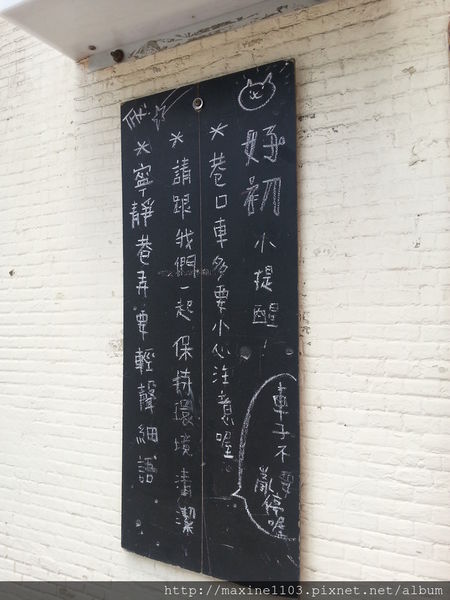 好初小提醒！
＊巷口車多要小心注意喔。
＊請跟我們一起保持環境清潔
＊寧靜巷弄要輕聲細語
車子不要
亂停喔
http://maxine1103.pixnet.net/album